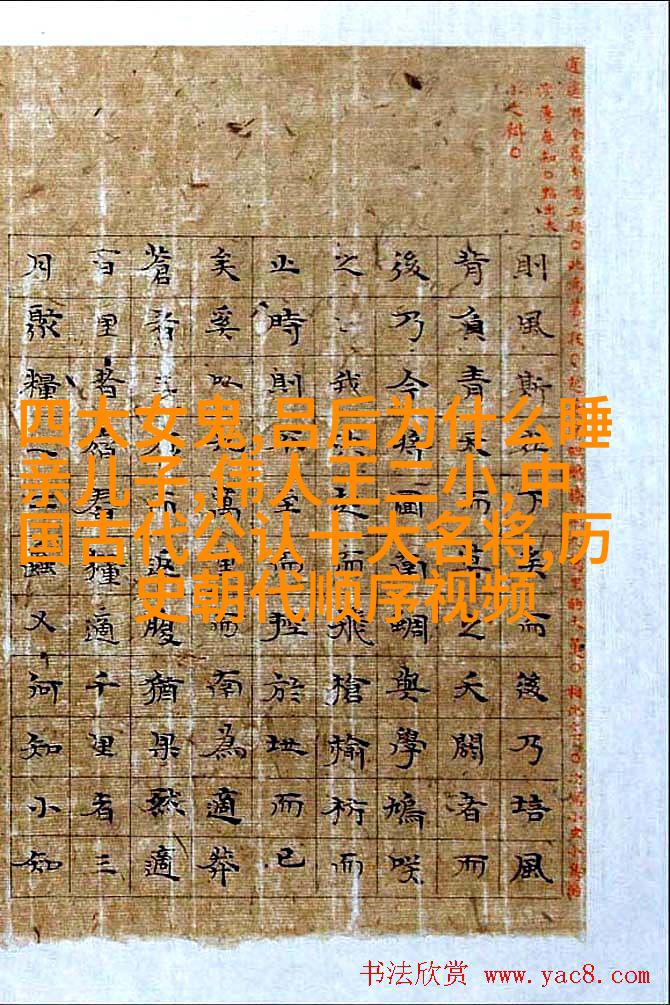 則風斯在下矣而後乃培風
背負青天而莫之夭閼者而
後乃今將圖南蜩與學鳩咲
之我決起而飛槍榆枋而
止時則不至而控於地而已
矣奚以九萬里而南為適莽
蒼者三飡而返腹猶果然適
百里者宿舂糧適千里者三
月聚糧之二蟲又何知小知
四大女鬼,吕后为什么睡
亲儿子,伟人王二小,中
国古代公认十大名将,历
史朝代顺序视频
书法欣赏 www.yac8.com